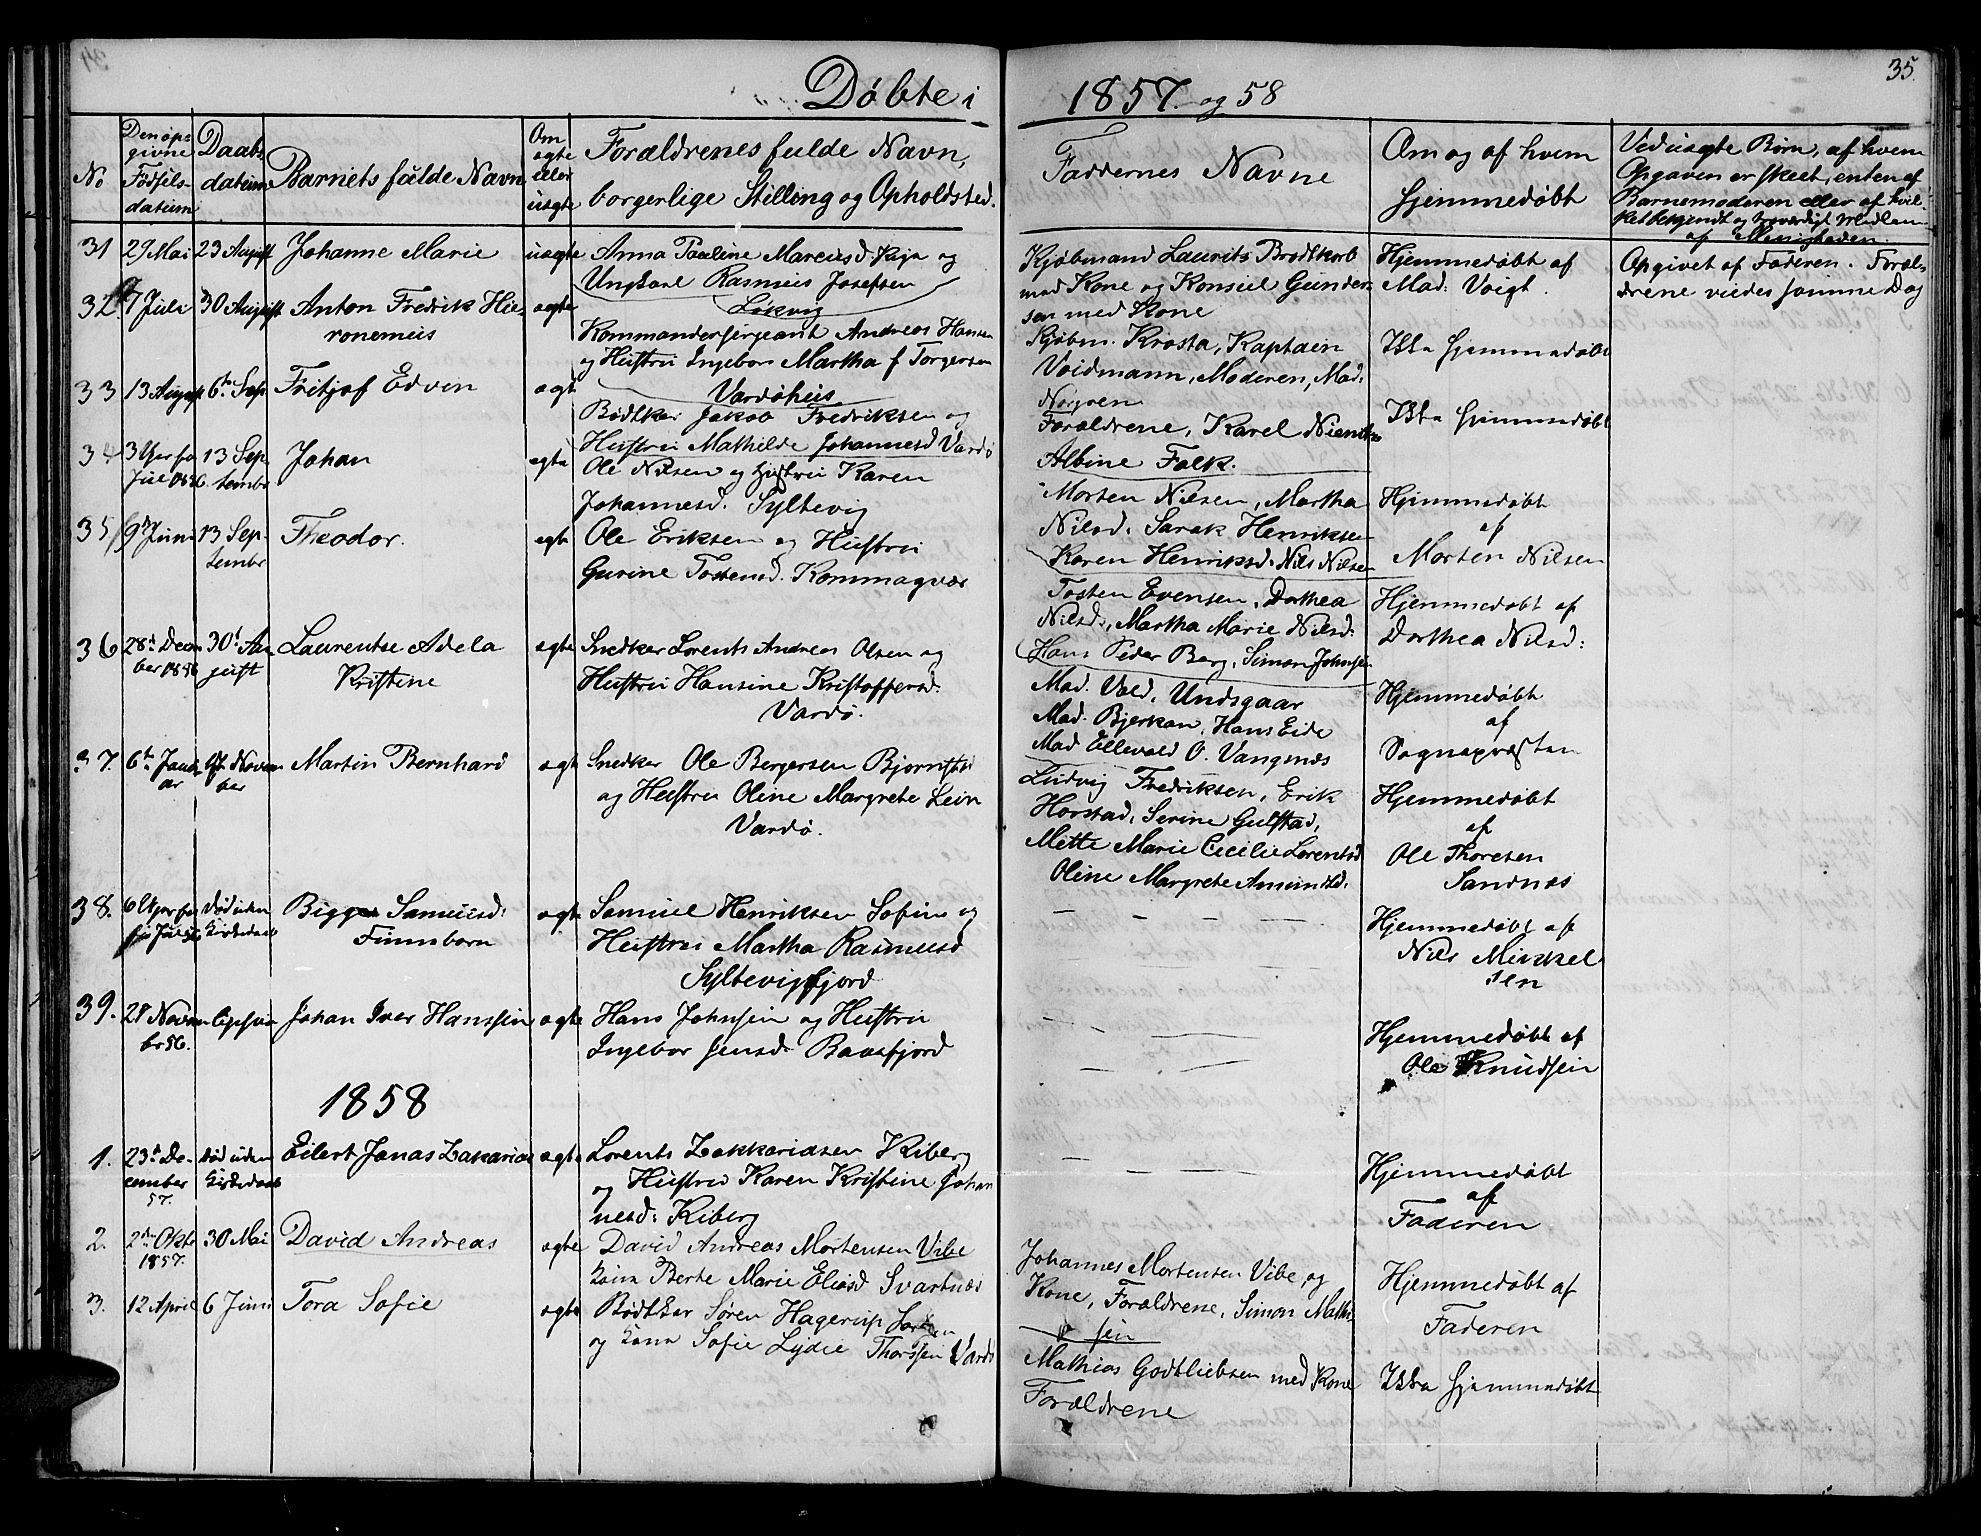 Døbte i
1857. og 58
35.
No
Den op=
givne
Fødsels
datum
Daabs
datum
Barnets fulde Navn
Om
ægte
eller
uægte
Forældrenes fulde Navn,
borgerlige Stilling og Opholdsted.
Faddernes Navne
Om og af hvem
hjemmedøbt
Ved uægte Børn, af hvem
Opgaven er skeet, enten af
Barnemoderen eller af hvil-
ket bekjendt og troværdigt Medlem
af Menigheden.
31
27 Mai
23 August
Johanne Marie
uægte
Anna Pauline Marcusd og
Ungkarl Rasmus Josefsen
Løkvig
Kjøbmand Laurits Brodtkorb
med Kone og Konsul Gunder
sen med Kone
Hjemmedøbt af
Mad: Voigt.
Opgivet af Faderen. Foræl-
drene viedes samme Dag
32
7 Juli
30 August
Anton Fredrik Hie
ronemus
ægte
Kommandersergeant Andreas Hansen
og Hustru Ingebor Martha f Torgersen
Vardøhus
Kjøbm. Krosta, Kaptain
Voidmann, Moderen, Mad.
Norgren
Ikke hjemmedøbt
33
13 August
6te Sep
Fritjof Edvin
ægt
Bødtker Jakob Fredriksen og
Hustru Mathilde Johannesd Vardø
Forældrene, Karel
Albine Falk.
Ikke hjemmedøbt
34
Juli 1856.
13 Sep
tembr
Johan
egte
Ole Nilsen og Hustru Karen
Johannesd. Syltevig
Morten Nilsen, Martha
Nilsd. Sarak Henriksen
Karen Henriksd. Nils Nilsen
Hjemmedøbt
af
Morten Nilsen
35
9de Juni
13 Sep
tembr
Theodor.
egte
Ole Eriksen og Hustru
Gurine Tostensd. Kommagvær
Tosten Evensen, Dorthea
Nilsd., Martha Marie Nilsd:
Hans Peder Berg, Simon Johnsen
Hjemmedøbt af
Dorthea Nilsd:
36
28de Decem
ber 1856
30t Au
gust
Laurentse Adela
Kristine
ægte
Snedker Lorents Andreas Olsen og
Hustru Hansine Kristoffersd.
Vardø.
Mad. Vold, Undsgaar
Mad. Bjerkan, Hans Eide
Mad Ellevold O. Vangnæs
Hjemmedøbt
af
Sognepræsten
37.
6te Janu
ar
Novem
ber
Martin Bernhard
ægt
Snedker Ole Bergersen Bjørnstad
og Hustru Oline Margrete Lein
Vardø.
Ludvig Fredriksen, Erik
Horstad, Serine Gulstad,
Mette Marie Cecilie Lorentsd
Oline Margrete Amundsd.
Hjemmedøbt
af
Ole Thoresen
Sandnæs
38.
død uden
Kirkedaab
Bigget Samuelsd:
Finnebarn
ægte
Samuel Henriksen Sofin og
Hustru Martha Rasmusd
Syltevigfjord
Hjemmedøbt af
Nils Mikkel
sen
39.
27 Novem
br 56.
Johan Iver Hanssen
ægte
Hans Johnsen og Hustru
Ingebor Jensd. Baasfjord
Hjemmedøbt af
Ole Knudsen
1858
1.
23de De-
cember
57.
død uden
Kirkedaab
Eilert Jonas Zakarias
ægte
Lorents Zakkariasen Kiberg
og Hustru Karen Kristine Johan
nesd: Kiberg
Hjemmedøbt
af
Faderen
2.
2den Oktb
1857.
30 Mai
David Andreas
ægte
David Andreas Mortensen Vibe
Kone Berte Marie Eliasd Svartnæs
Johannes Mortensen Vibe og
Kone, Forældrene, Simon Mathi
sen
Hjemmedøbt af
Faderen
3.
12 April
6 Juni
Tora Sofie
ægte
Bødtker Søren Hagerup
og Kone Sofie Lydie Thorssen Vardø
Mathias Godtliebsen med Kone
Forældrene
Ikke hjemmedøbt